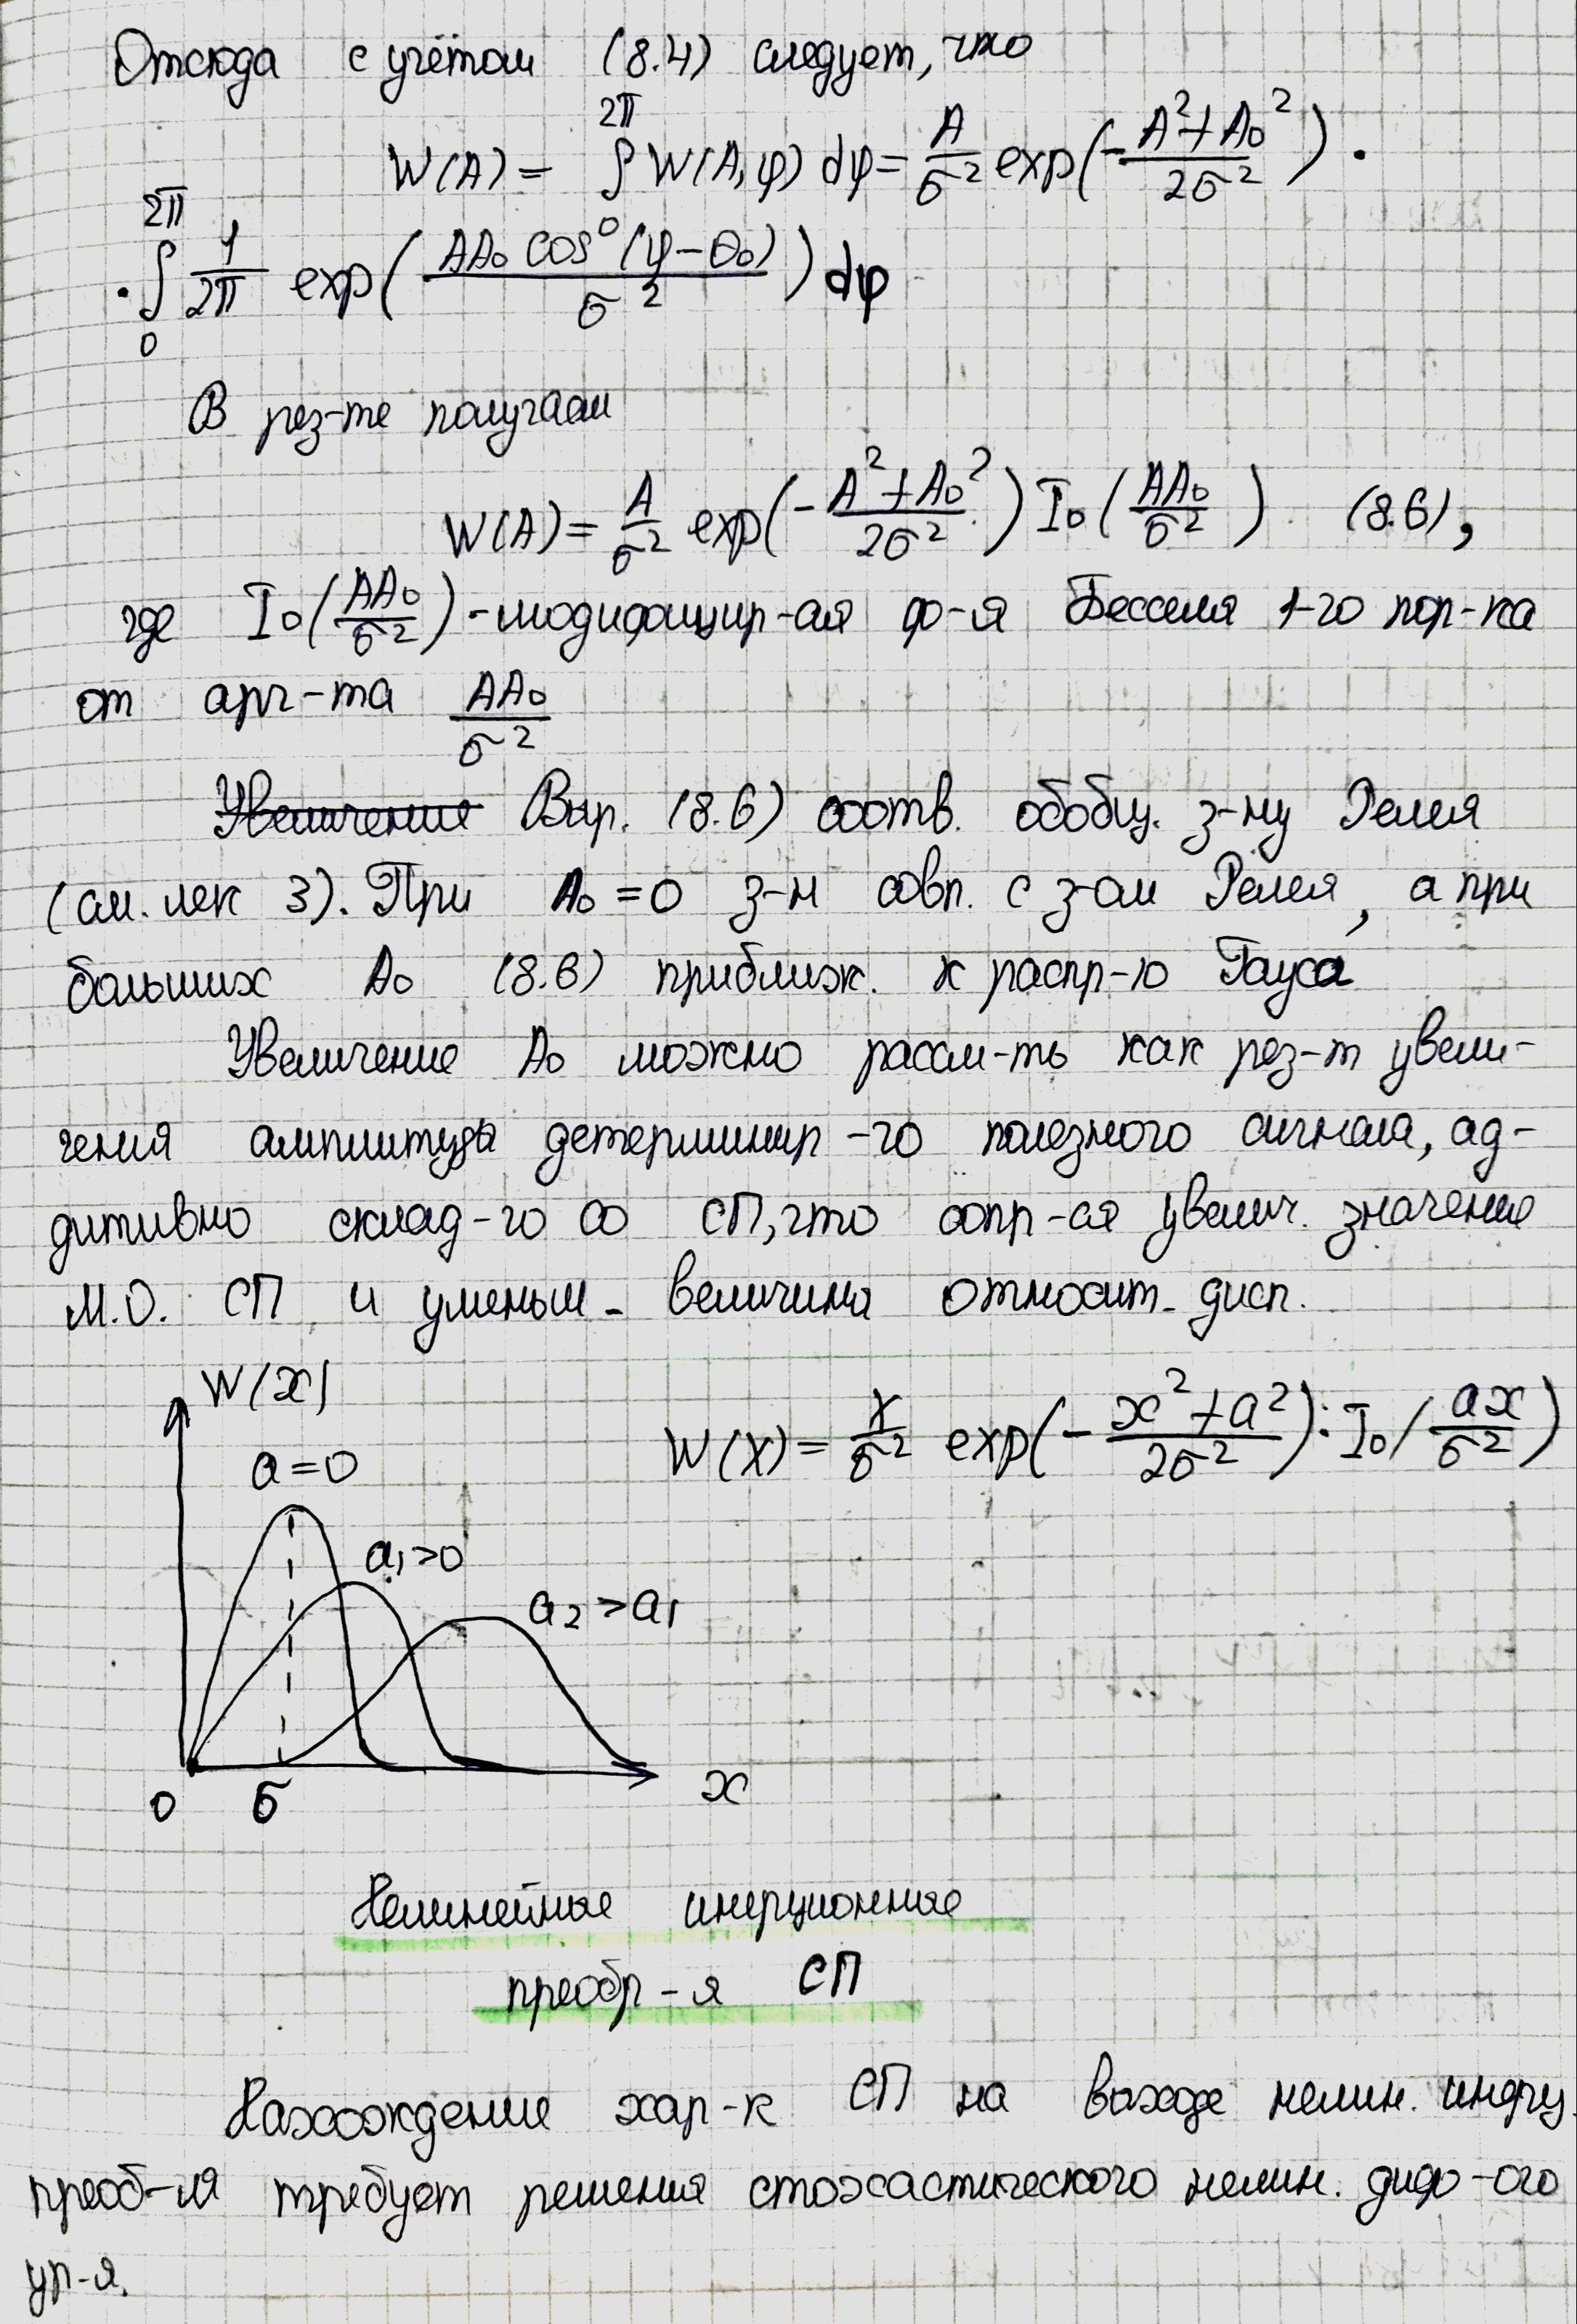 Отсюда с учётом (8.4) следует, что
W(A) = ∫₀^2π W(A,φ) dφ = A/σ² exp(-(A²+A₀²)/2σ²) ·
· ∫₀^2π 1/2π exp(AA₀ cos(φ-θ₀)/σ²) dφ
В рез-те получаем
W(A) = A/σ² exp(-(A²+A₀²)/2σ²) I₀(AA₀/σ²) (8.6),
где I₀(AA₀/σ²) - модифицир-ая ф-я Бесселя 1-го пор-ка
от арг-та AA₀/σ²
~~Увеличение~~ Выр. (8.6) соотв. обобщ. з-ну Релея
(см. лек 3). При A₀ = 0 з-н совп. с з-ом Релея, а при
больших A₀ (8.6) приближ. к распр-ю Гауса
Увеличение A₀ можно рассм-ть как рез-т увели-
чения амплитуды детерминир-го полезного сигнала, ад-
дитивно склад-го со СП, что сопр-ся увелич. значение
М.О. СП и уменьш- величина относит- дисп.
W(x)
W(x) = x/σ² exp(-(x²+a²)/2σ²) · I₀(ax/σ²)
a=0
a₁>0
a₂>a₁
0 σ x
Нелинейные инерционные
преобр-я СП
Нахождение хар-к СП на выходе нелин. инерц.
преоб-ля требует решения стохастического нелин. диф-ого
ур-я.